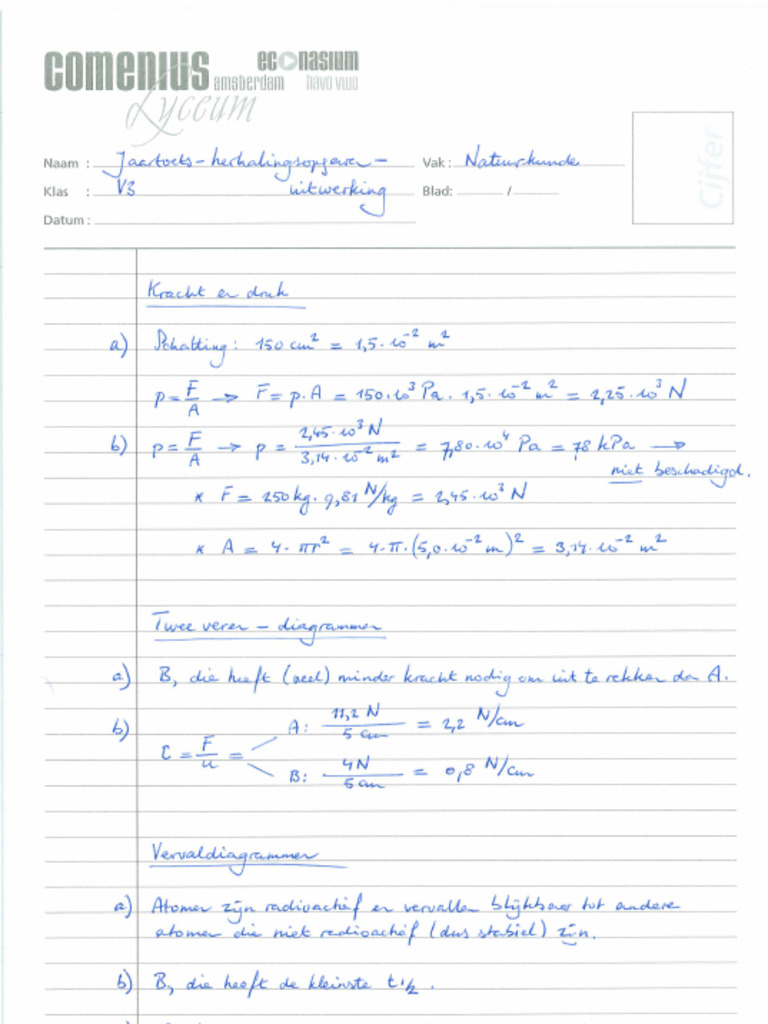 comenius
Lyceum
amsterdam
econasium
havo vwo
Naam : Jaartoets-herhalingsopgaven - Vak: Natuurkunde
Klas : V3 uitwerking Blad: /
Datum :
Cijfer
Kracht en druk
a) Schatting: 150 cm² = 1,5·10⁻² m²
p = F/A → F = p.A = 150·10³ Pa · 1,5·10⁻² m² = 2,25·10³ N
b) p = F/A → p = 2,45·10³ N / 3,14·10⁻² m² = 7,80·10⁴ Pa = 78 kPa →
niet beschadigd.
* F = 250 kg · 9,81 N/kg = 2,45·10³ N
* A = 4·πr² = 4·π·(5,0·10⁻² m)² = 3,14·10⁻² m²
Twee veren - diagrammen
a) B, die heeft (veel) minder kracht nodig om uit te rekken dan A.
b) C = F/u = A: 11,2 N / 5 cm = 2,2 N/cm
B: 4 N / 5 cm = 0,8 N/cm
Vervaldiagrammen
a) Atomen zijn radioactief en vervallen blijkbaar tot andere
atomen die niet radioactief (dus stabiel) zijn.
b) B, die heeft de kleinste t½.